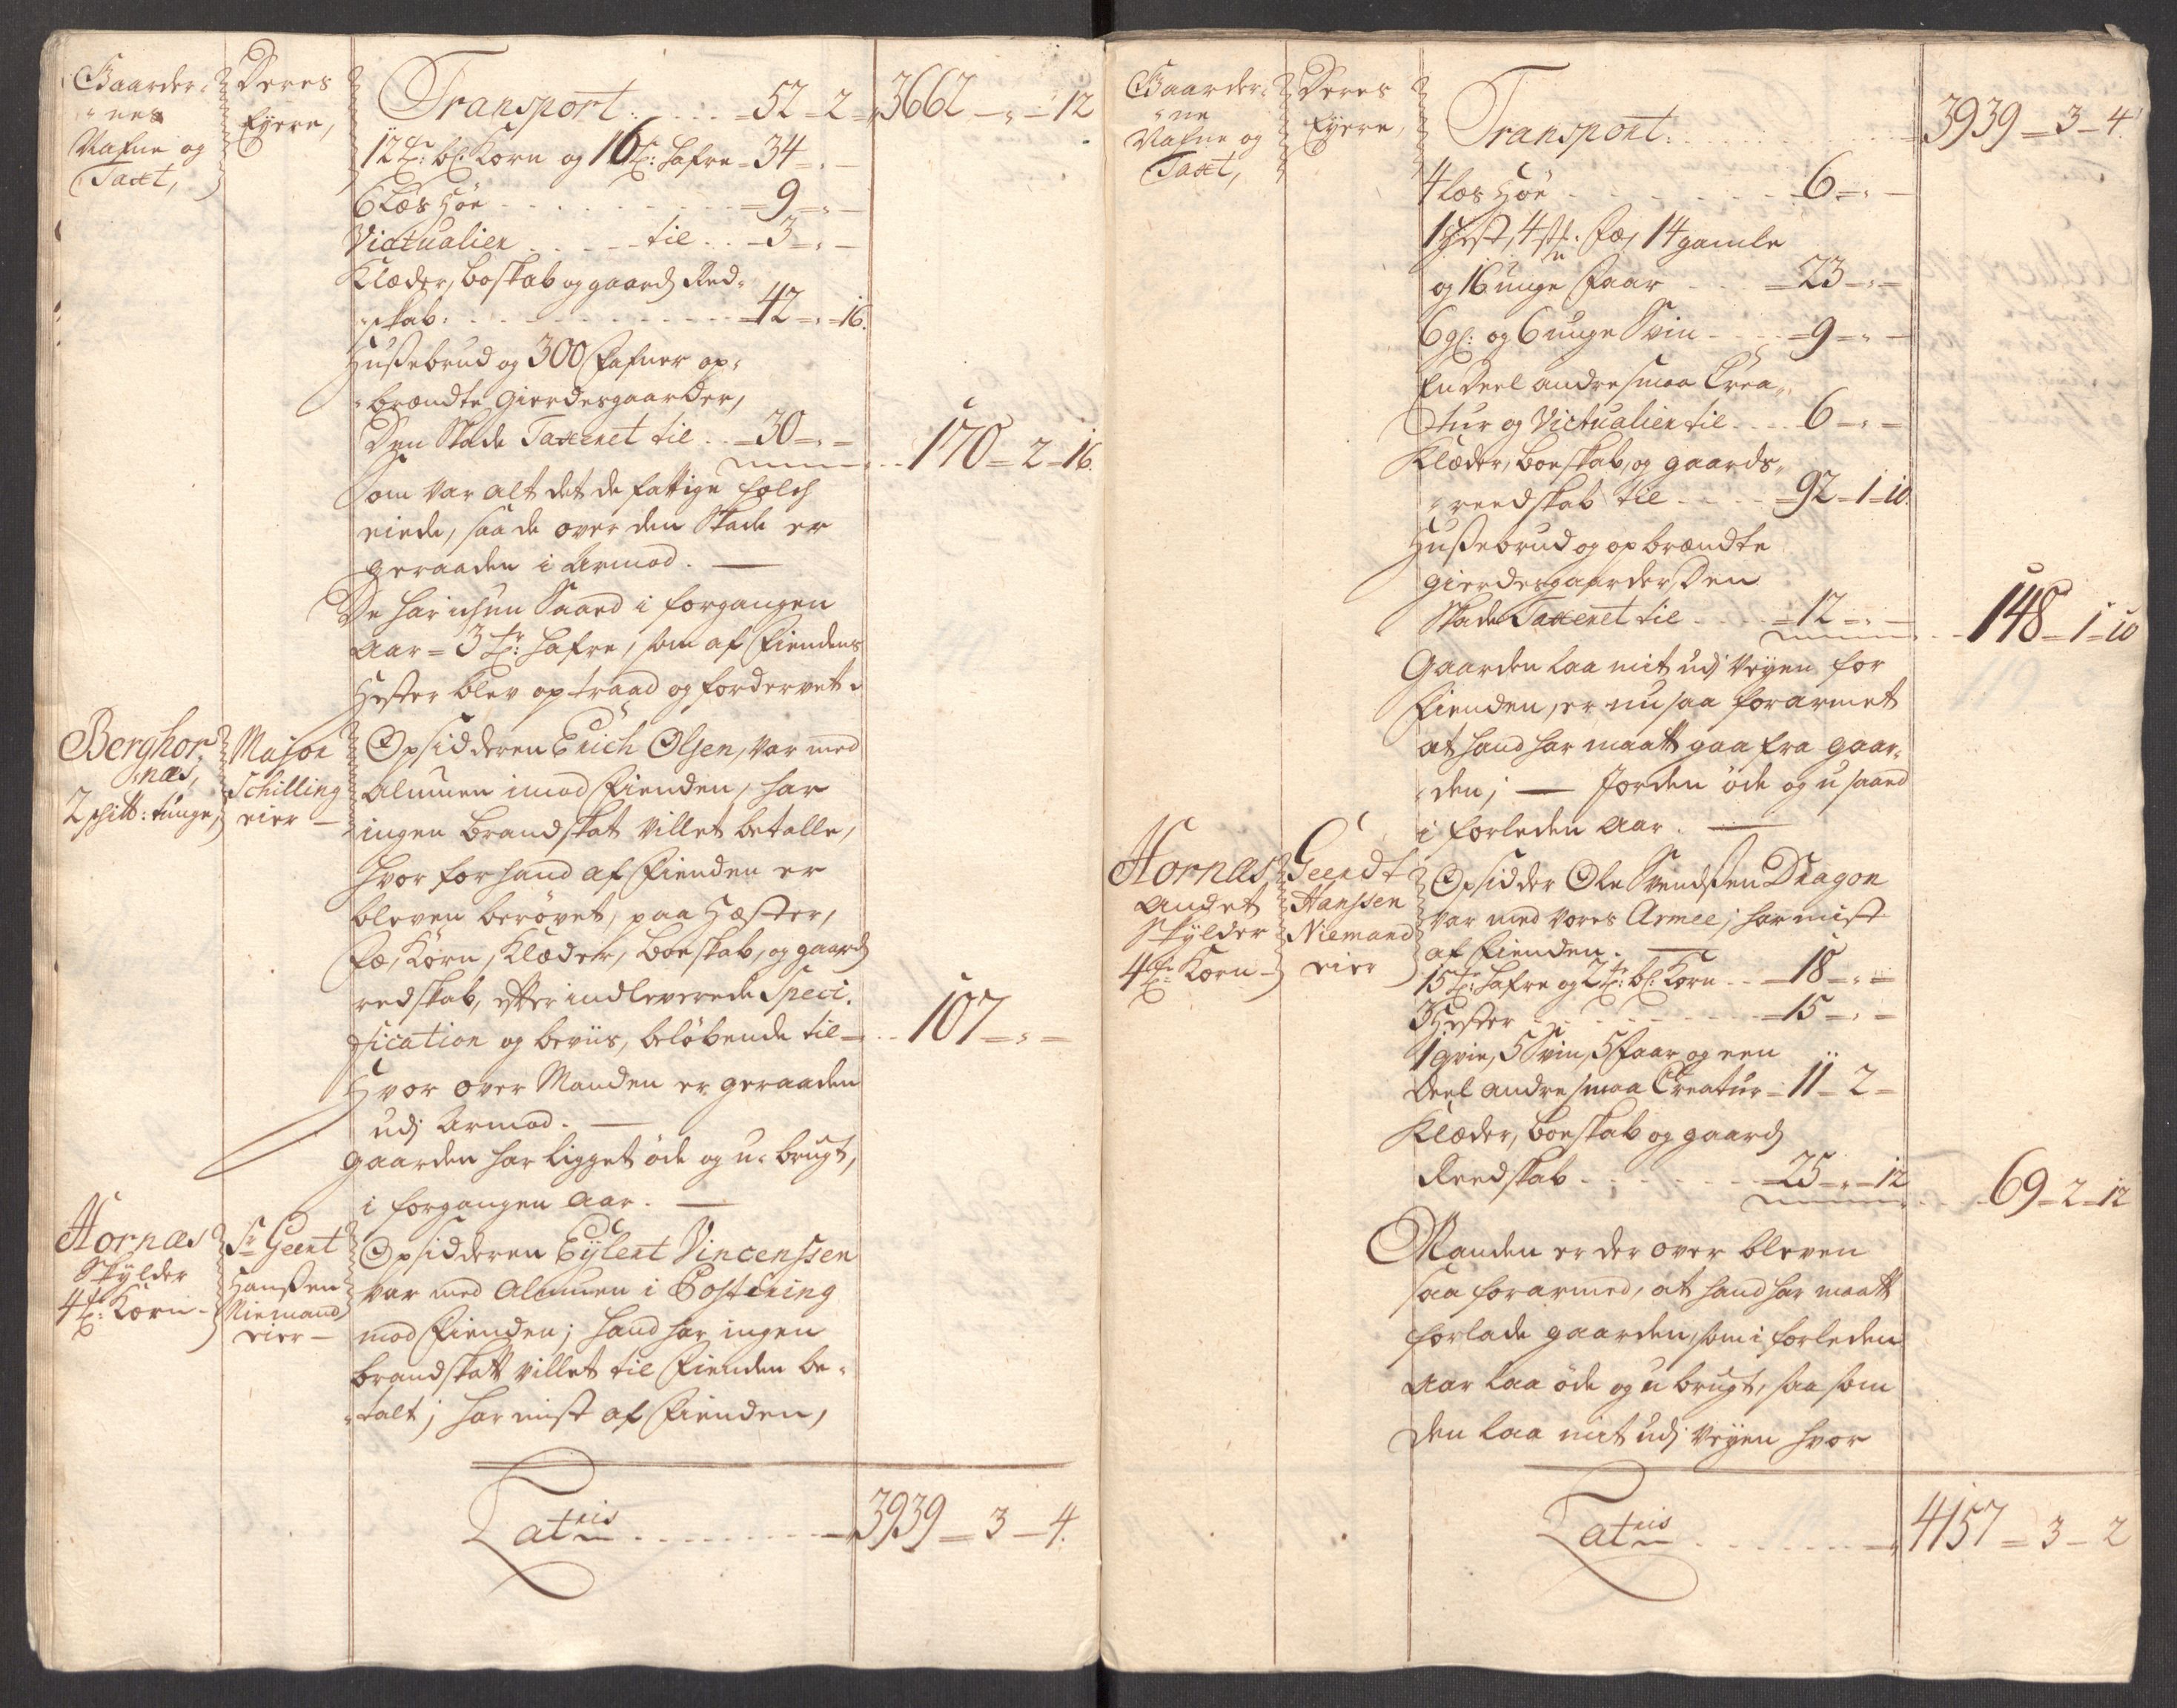 Gaarder-
"nes
Nafne og
Taxt,
Deres
Eyere,
Transport: . . . . 52 - 2 - 3662 - " - 12
12 t: bl: Korn og 16 t: hafre - 34 - " -
6 Læs Høe . . . . . . . 9 - " -
Victualier . . . . . til . . 3 - " -
Klæder, boskab og gaards Red-
"skab: . . . . . . . . . 42 - " - 16.
Hussebrud og 300 Fafner op-
"brændte Gierdesgaarder,
Den Skade Taxeret til . . 30 - " -
170 - 2 - 16.
Som var alt det de fattige folch
eiede, saa de over den Skade er
geraaden i Armod. —
De har ichun Saaed i forgangen
Aar - 3 tr: hafre, som af Fiendens
Hester blev optraad og fordervet.
Berghor-
"næs,
2 schitt: tunge,
Major
Schilling
eier —
Opsidderen Erich Olsen, var med
Almuen imod Fienden, har
ingen Brandskat villet betalle,
hvor for hand af Fienden er
bleven berøvet, paa Hæster,
Fæ, Korn, Klæder, boeskab, og gaards
redskab, efter indleverede Speci-
fication og beviis, beløbende til - . . 107 - " -
Hvor over Manden er geraaden
udj Armod. —
Gaarden har ligget øde og u-brugt,
i forgangen Aar. —
Hornæs
Skylder
4 t: Korn -
Sr Geert
Hanssen
Niemand
eier —
Opsidderen Eylert Vincenssen
var med Almuen i Postering
mod Fienden; hand har ingen
brandskatt villet til Fienden be-
"talt; har mist af Fienden,
Lateris . . . . . . . . 3939 - 3 - 4.
Gaarder-
"ne
Nafne og
Taxt,
Deres
Eyere,
Transport: . . . . . . . 3939 - 3 - 4.
4 los Høe . . . . . . . 6 - " -
1 Hest, 4 st: Fæ, 14 gamle
og 16 unge Faar . . . 23 - " -
6 gl: og 6 unge Svin . . . 9 - " -
En Deel andre smaa Crea-
"tur og Victualier til . . . 6 - " -
Klæder, boeskab, og gaards-
"reedskab til . . . . 92 - 1 - 10.
Hussebrud og opbrændte
gierdesgaarder Den
Skade Taxeret til . . . 12 - " -
148 - 1 - 10
Gaarden laa mit udj Veyen for
Fienden, er nu saa forarmet
at hand har maatt gaa fra gaar-
"den; — Jorden øde og usaaed
i forleden Aar. —
Hornæs
Andet
Skylder
4 t: Korn -
Geerdt
Hanssen
Niemand
eier
Opsidder Ole Svendssen Dragon
var med vores Armee; har mist
af Fienden. —
15 tr: hafre og 2 tr: bl: Korn . . 18 - " -
3 Hester . . . . . . . 15 - " -
1 qvie, 5 Svin, 5 Faar og een
Deel andre smaa Creatur - 11 - 2 -
Klæder, boeskab og gaards
Reedskab . . . . . . 25 - " - 12
69 - 2 - 12
Manden er der over bleven
saa forarmed, at hand har maatt
forlade gaarden, som i forleden
Aar laa øde og u brugt, saa som
den laa mit udj Veyen hvor
Lateris . . . . . . . 4157 - 3 - 2